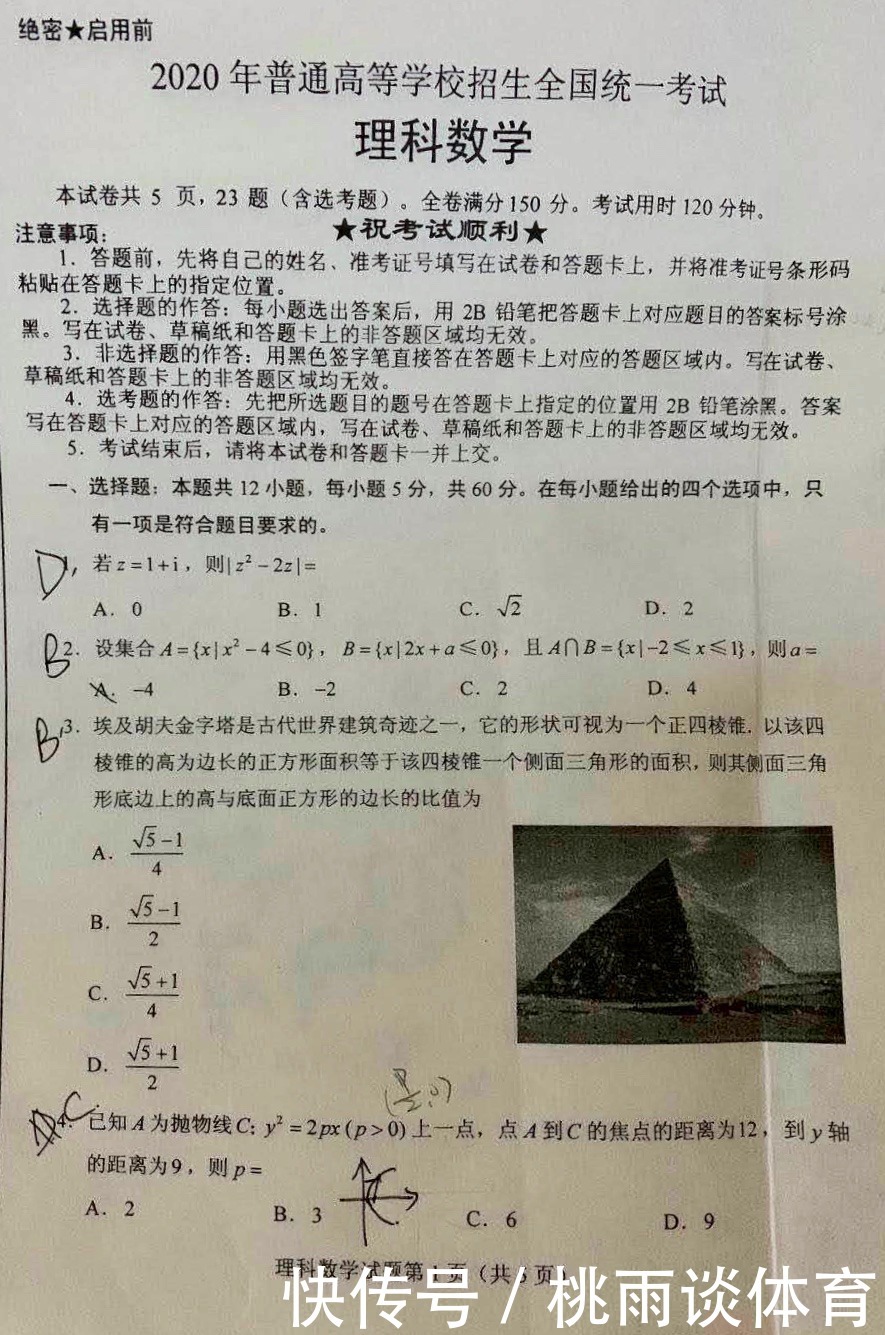 绝密★启用前
2020 年普通高等学校招生全国统一考试
理科数学
本试卷共 5 页，23 题（含选考题）。全卷满分 150 分。考试用时 120 分钟。
★祝考试顺利★
注意事项：
1．答题前，先将自己的姓名、准考证号填写在试卷和答题卡上，并将准考证号条形码
粘贴在答题卡上的指定位置。
2．选择题的作答：每小题选出答案后，用 2B 铅笔把答题卡上对应题目的答案标号涂
黑。写在试卷、草稿纸和答题卡上的非答题区域均无效。
3．非选择题的作答：用黑色签字笔直接答在答题卡上对应的答题区域内。写在试卷、
草稿纸和答题卡上的非答题区域均无效。
4．选考题的作答：先把所选题目的题号在答题卡上指定的位置用 2B 铅笔涂黑。答案
写在答题卡上对应的答题区域内，写在试卷、草稿纸和答题卡上的非答题区域均无效。
5．考试结束后，请将本试卷和答题卡一并上交。
一、选择题：本题共 12 小题，每小题 5 分，共 60 分。在每小题给出的四个选项中，只
有一项是符合题目要求的。
D 1．若 z=1+i，则|z²−2z|=
A．0 B．1 C．√2 D．2
B 2．设集合 A={x|x²−4≤0}，B={x|2x+a≤0}，且 A∩B={x|−2≤x≤1}，则 a=
A．−4 B．−2 C．2 D．4
B 3．埃及胡夫金字塔是古代世界建筑奇迹之一，它的形状可视为一个正四棱锥．以该四
棱锥的高为边长的正方形面积等于该四棱锥一个侧面三角形的面积，则其侧面三角
形底边上的高与底面正方形的边长的比值为
A．(√5−1)/4
B．(√5−1)/2
C．(√5+1)/4
D．(√5+1)/2
C 4．已知 A 为抛物线 C：y²=2px(p>0) 上一点，点 A 到 C 的焦点的距离为12，到 y 轴
的距离为9，则 p=
A．2 B．3 C．6 D．9
理科数学试题第 1 页（共 5 页）
快传号 / 桃雨谈体育